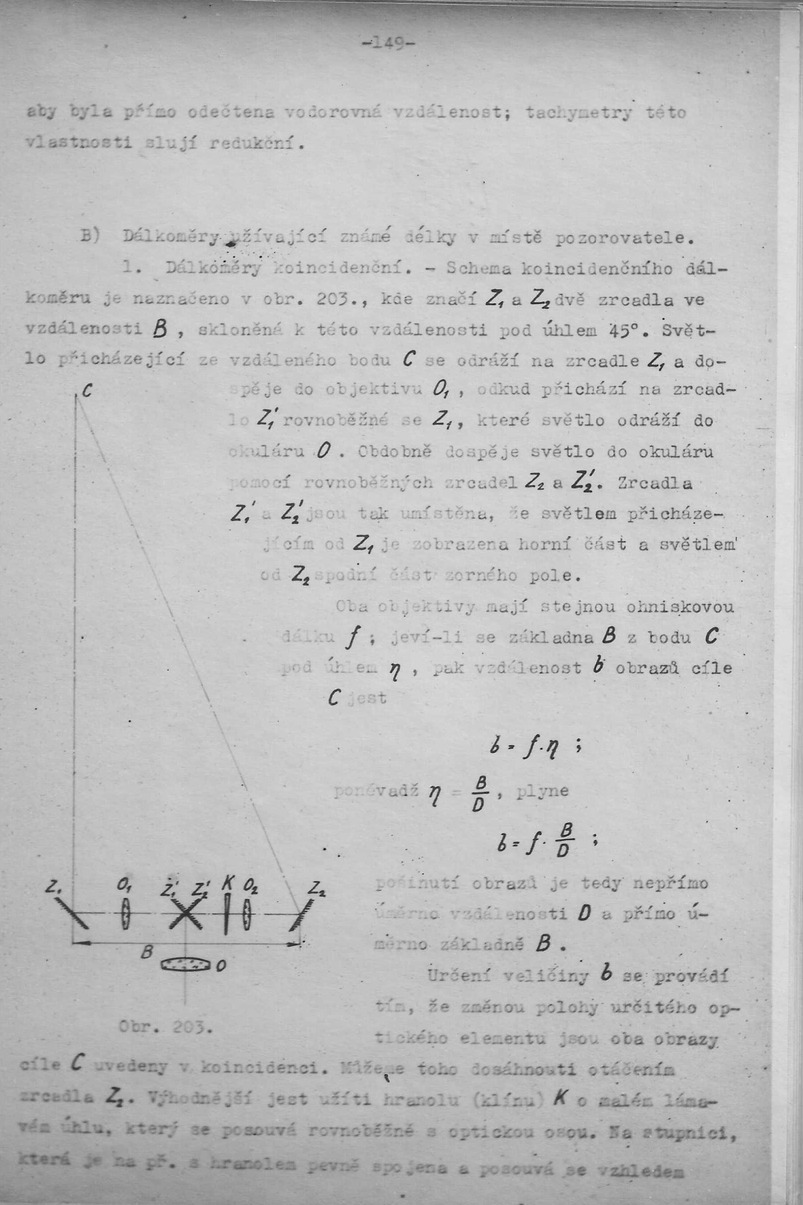 -149-
aby byla přímo odečtena vodorovná vzdálenost; tachymetry této
vlastnosti slují redukční.
B) Dálkoměry užívající známé délky v místě pozorovatele.
1. Dálkoměry koincidenční. - Schema koincidenčního dál-
koměru je naznačeno v obr. 203., kde značí Z₁ a Z₂ dvě zrcadla ve
vzdálenosti B , skloněná k této vzdálenosti pod úhlem 45°. Svět-
lo přicházející ze vzdáleného bodu C se odráží na zrcadle Z₁ a do-
spěje do objektivu O₁ , odkud přichází na zrcad-
lo Z₁' rovnoběžné se Z₁, které světlo odráží do
okuláru O . Obdobně dospěje světlo do okuláru
pomocí rovnoběžných zrcadel Z₂ a Z₂'. Zrcadla
Z₁' a Z₂' jsou tak umístěna, že světlem přicháze-
jícím od Z₁ je zobrazena horní část a světlem
od Z₂ spodní část zorného pole.
Oba objektivy mají stejnou ohniskovou
dálku f ; jeví-li se základna B z bodu C
pod úhlem η , pak vzdálenost b obrazů cíle
C jest
b = f·η ;
poněvadž η = B/D , plyne
b = f· B/D ;
pošinutí obrazů je tedy nepřímo
úměrno vzdálenosti D a přímo ú-
měrno základně B .
Určení veličiny b se provádí
tím, že změnou polohy určitého op-
tického elementu jsou oba obrazy
cíle C uvedeny v koincidenci. Můžeme toho dosáhnouti otáčením
zrcadla Z₂. Výhodnější jest užíti hranolu (klínu) K o malém láma-
vém úhlu, který se posouvá rovnoběžně s optickou osou. Na stupnici,
která je na př. s hranolem pevně spojena a posouvá se vzhledem
C
Z₁ O₁ Z₁' Z₂' K O₂ Z₂
B
O
Obr. 203.